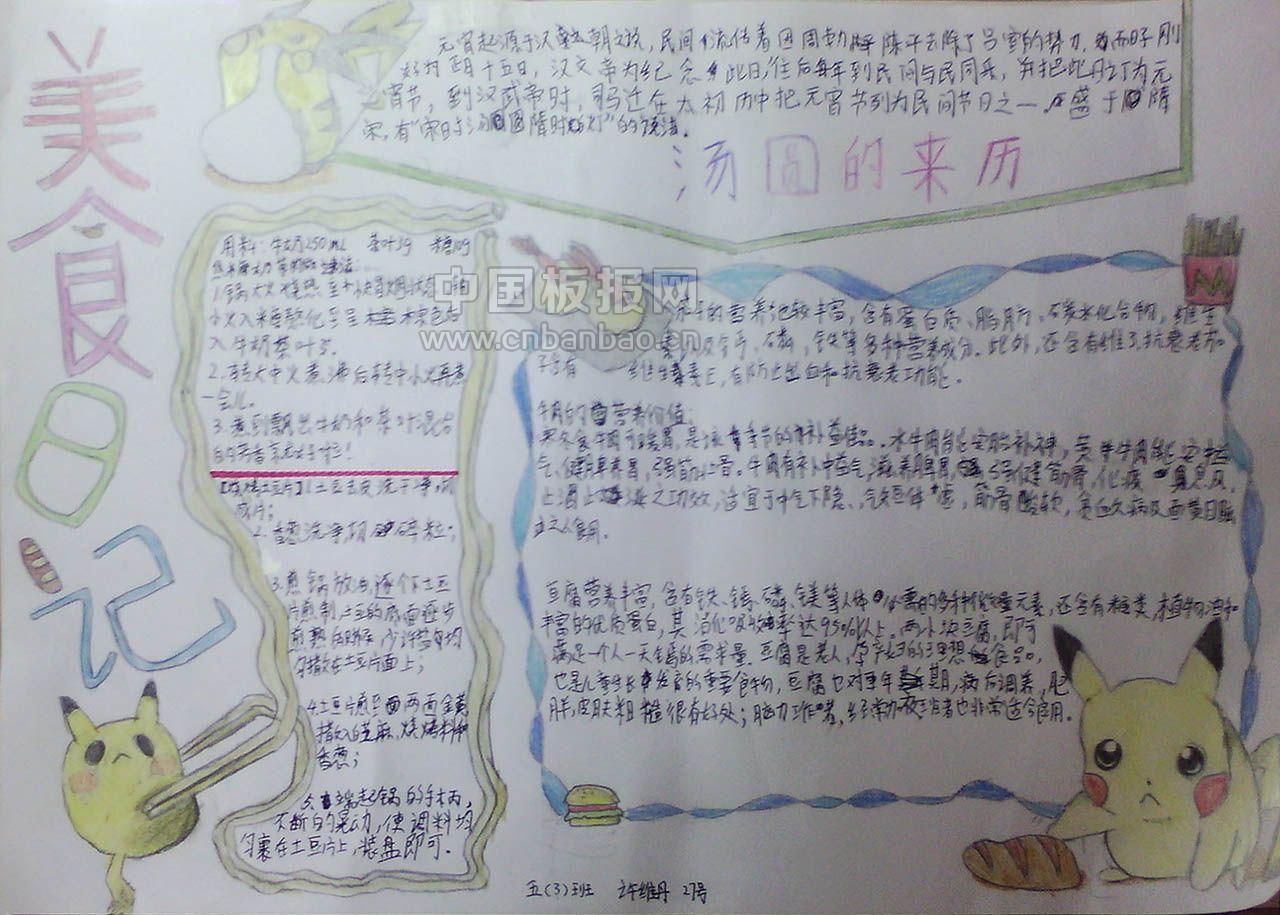 美食日记
元宵起源于汉朝之说，民间流传着因周勃陈平去除了吕雪的势力，而日子刚
好为正月十五日，汉文帝为纪念此日，往后每年到民间与民同乐，并把此月订为元
宵节，到汉武帝时，司马迁在太初历中把元宵节列为民间节日之一，盛于隋
宋，有"宋时汤圆隋时灯"的说法。
汤圆的来历
用料：牛奶250mL 茶叶3g 糖10g
1.锅大火烧热至
小火入糖熬化至呈棕色
入牛奶茶叶3.
2.转大中火煮沸后转中小火再煮
一会儿。
3.煮到飘出牛奶和茶叶混合
的芳香就好啦！
【烧烤土豆片】1.土豆去皮洗干净，切
成片；
2.香葱洗净，切碎粒；
3.煎锅放油，逐个下土豆
片煎制，土豆的底面逐步
煎熟的时候，少许盐均匀
撒在土豆片面上；
4.土豆片煎至两面金黄
撒入白芝麻，烧烤料和
香葱；
端起锅的手柄，
不断的晃动，使调料均
匀裹在土豆片上，装盘即可。
中国板报网
www.cnbanbao.cn
的营养比较丰富，含有蛋白质、脂肪、碳水化合物，维生
素以及钙、磷，铁等多种营养成分。此外，还含有维
子含有 维生素E，有防止出血和抗衰老功能。
牛肉的营养价值：
寒冬食牛肉可暖胃，是该季节的补益佳品。水牛肉能安胎补神，黄牛肉能安中益
气、健脾养胃，强筋壮骨。牛肉有补中益气，滋养脾胃，强健筋骨，化痰息风，
止渴止涎之功效，适宜于中气下隐、气短体虚，筋骨酸软，贫血久病及面黄目眩
之人食用。
豆腐营养丰富，含有铁、钙、磷、镁等人体必需的多种微量元素，还含有糖类，植物油和
丰富的优质蛋白，其消化吸收率达95%以上。两小块豆腐，即可
满足一个人一天钙的需求量。豆腐是老人，孕产妇的理想食品，
也是儿童生长发育的重要食物，豆腐也对更年期，病后调养，肥
胖，皮肤粗糙很有好处；脑力工作者，经常加夜班者也非常适合食用。
五（3）班 许维丹 27号